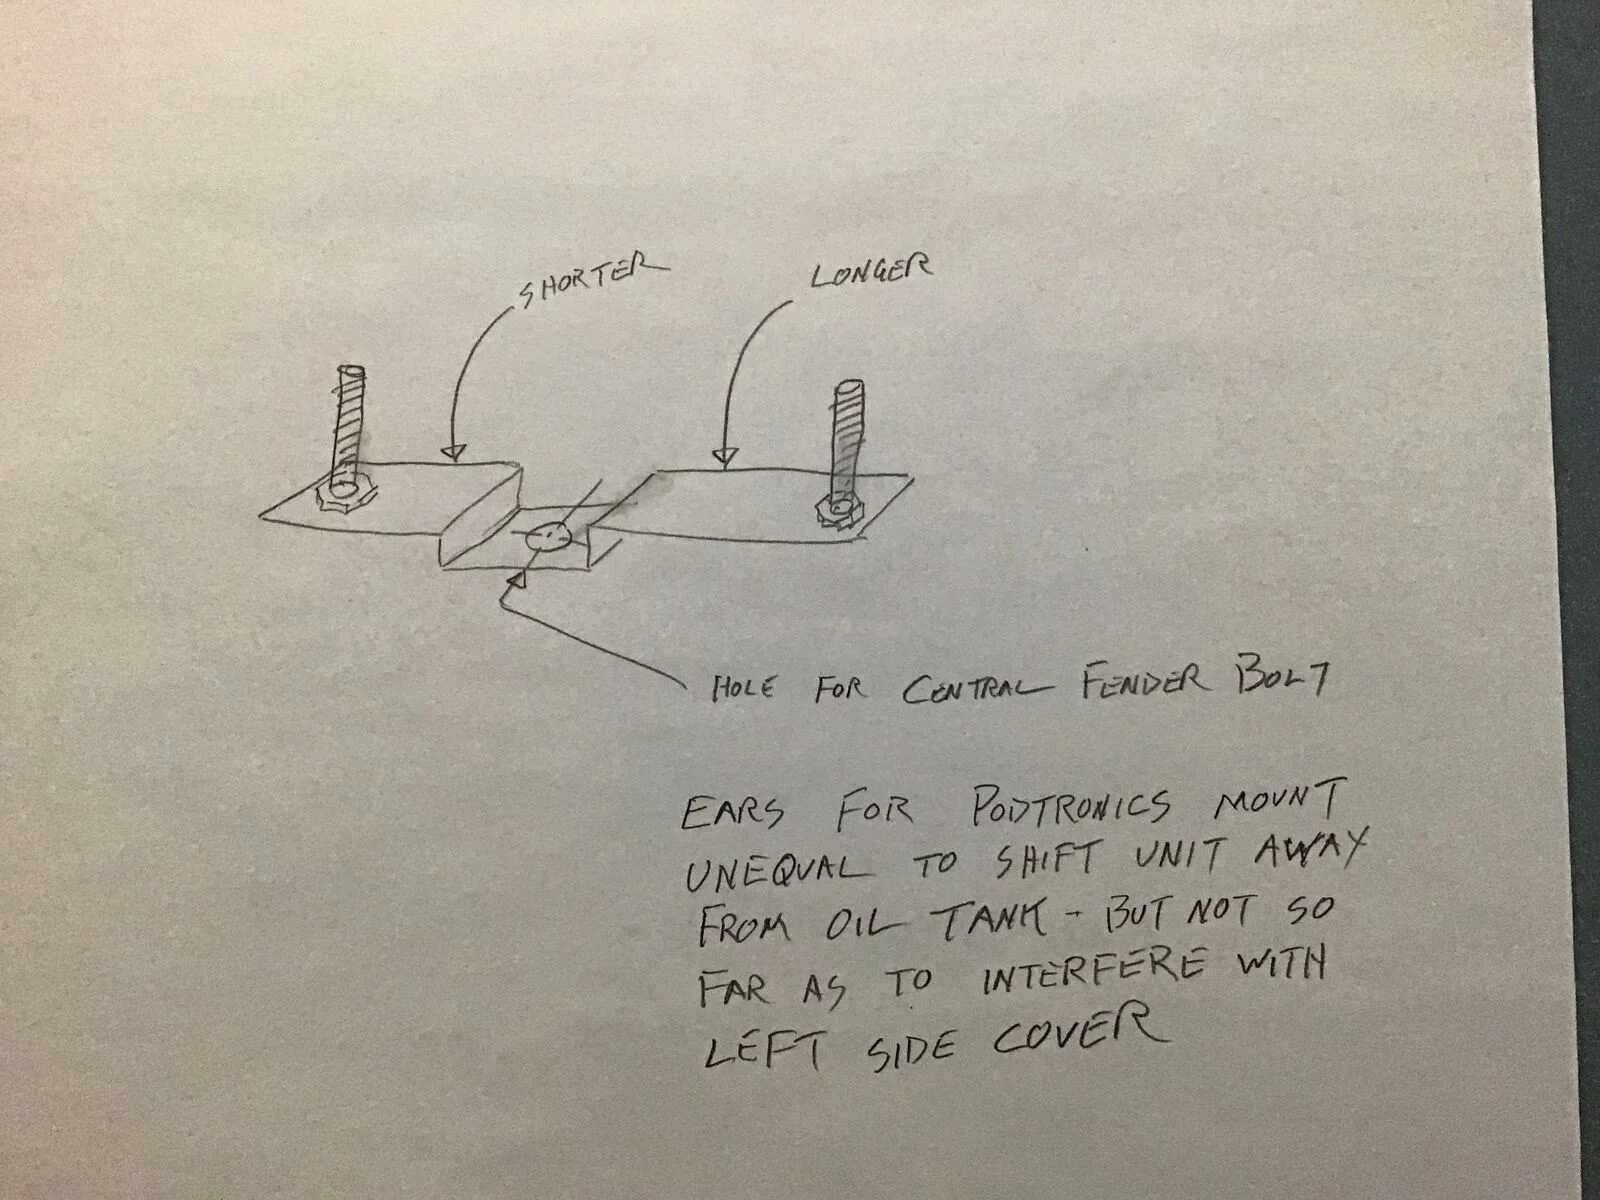 SHORTER
LONGER
HOLE FOR CENTRAL FENDER BOLT
EARS FOR PODTRONICS MOUNT
UNEQUAL TO SHIFT UNIT AWAY
FROM OIL TANK - BUT NOT SO
FAR AS TO INTERFERE WITH
LEFT SIDE COVER